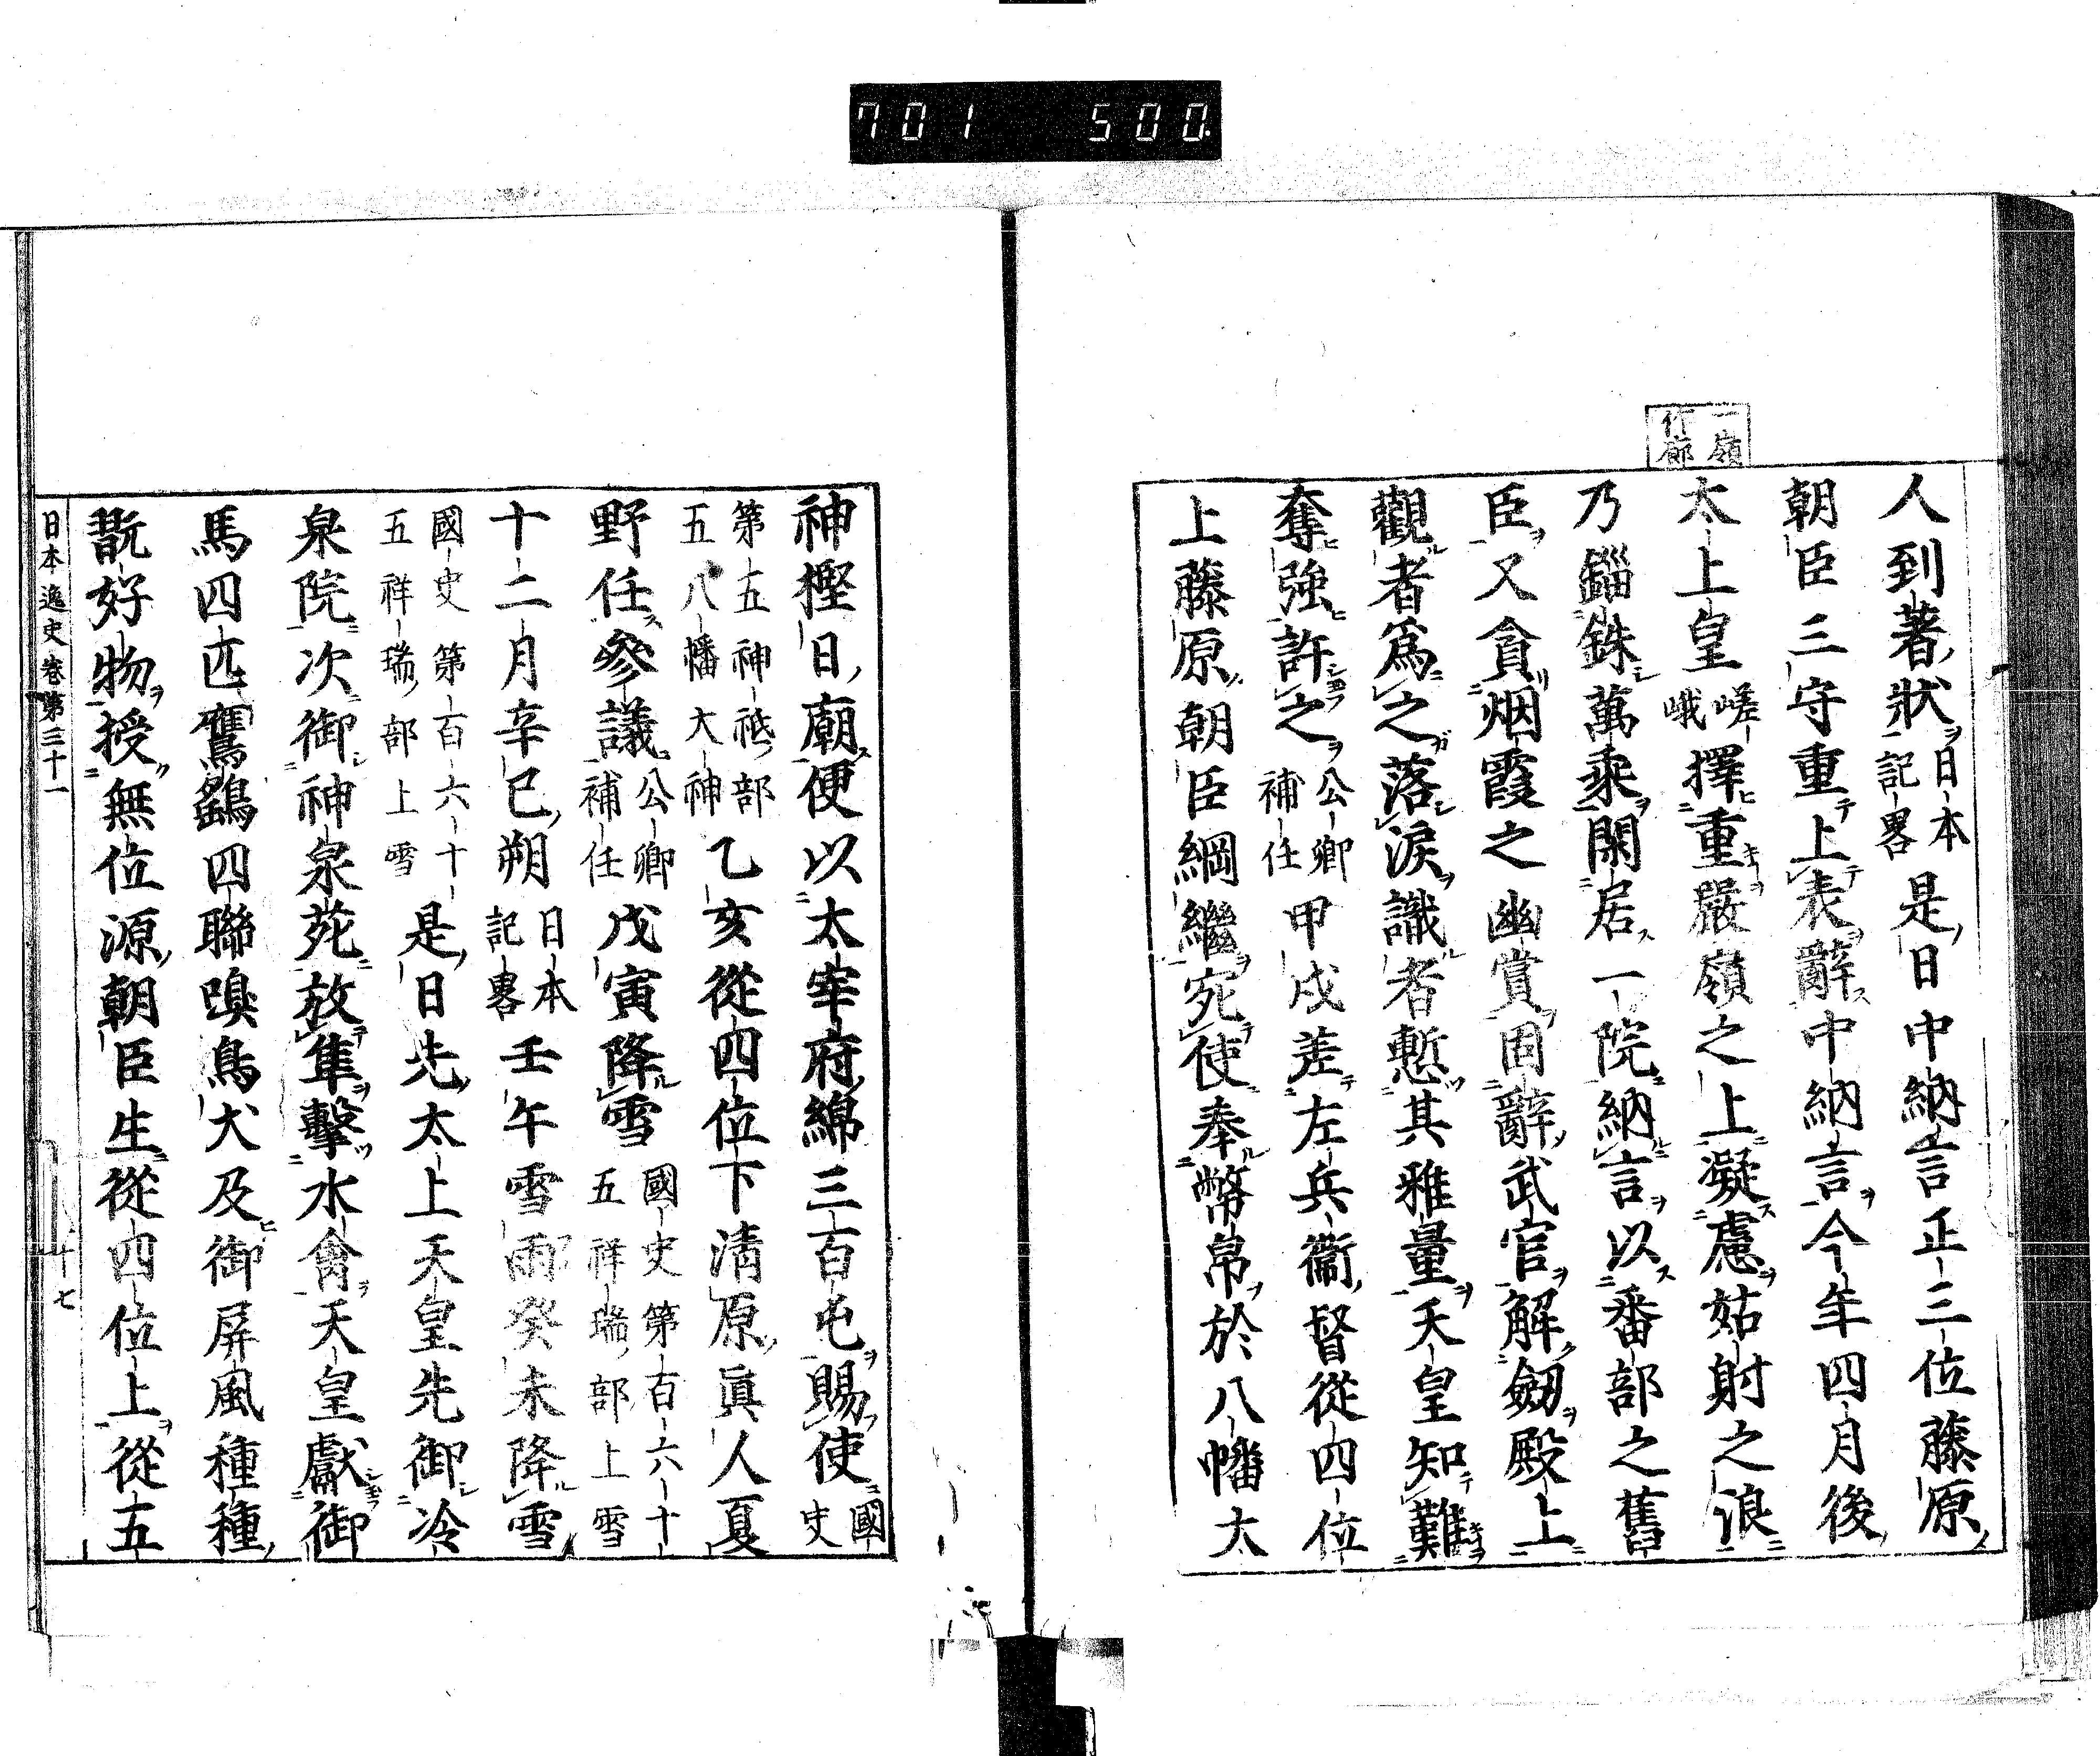 701 500.
一嶺
作廊
人到著狀日本記畧是日中納言正三位藤原
朝臣三守重上表辭中納言今年四月後
太上皇嵯峨擇重嚴嶺之上凝慮姑射之浪
乃錙銖萬乘閑居一院納言以番部之舊
臣又貪烟霞之幽賞固辭武官解劔殿上
觀者爲之落淚識者慙其雅量天皇知難
奪強許之公卿補任甲戌差左兵衞督從四位
上藤原朝臣綱繼宛使奉幣帛於八幡太
神樫日廟便以太宰府綿三百屯賜使國史
第五神祇部五八幡大神乙亥從四位下清原眞人夏
野任參議公卿補任戊寅降雪國史第百六十五祥瑞部上雪
十二月辛巳朔日本記畧壬午雪雨癸未降雪
國史第百六十五祥瑞部上雪是日先太上天皇先御冷
泉院次御神泉苑放隼擊水禽天皇獻御
馬四匹鷹鷂四聯嗅鳥犬及御屏風種種
翫好物授無位源朝臣生從四位上從五
日本逸史卷第三十一
十七